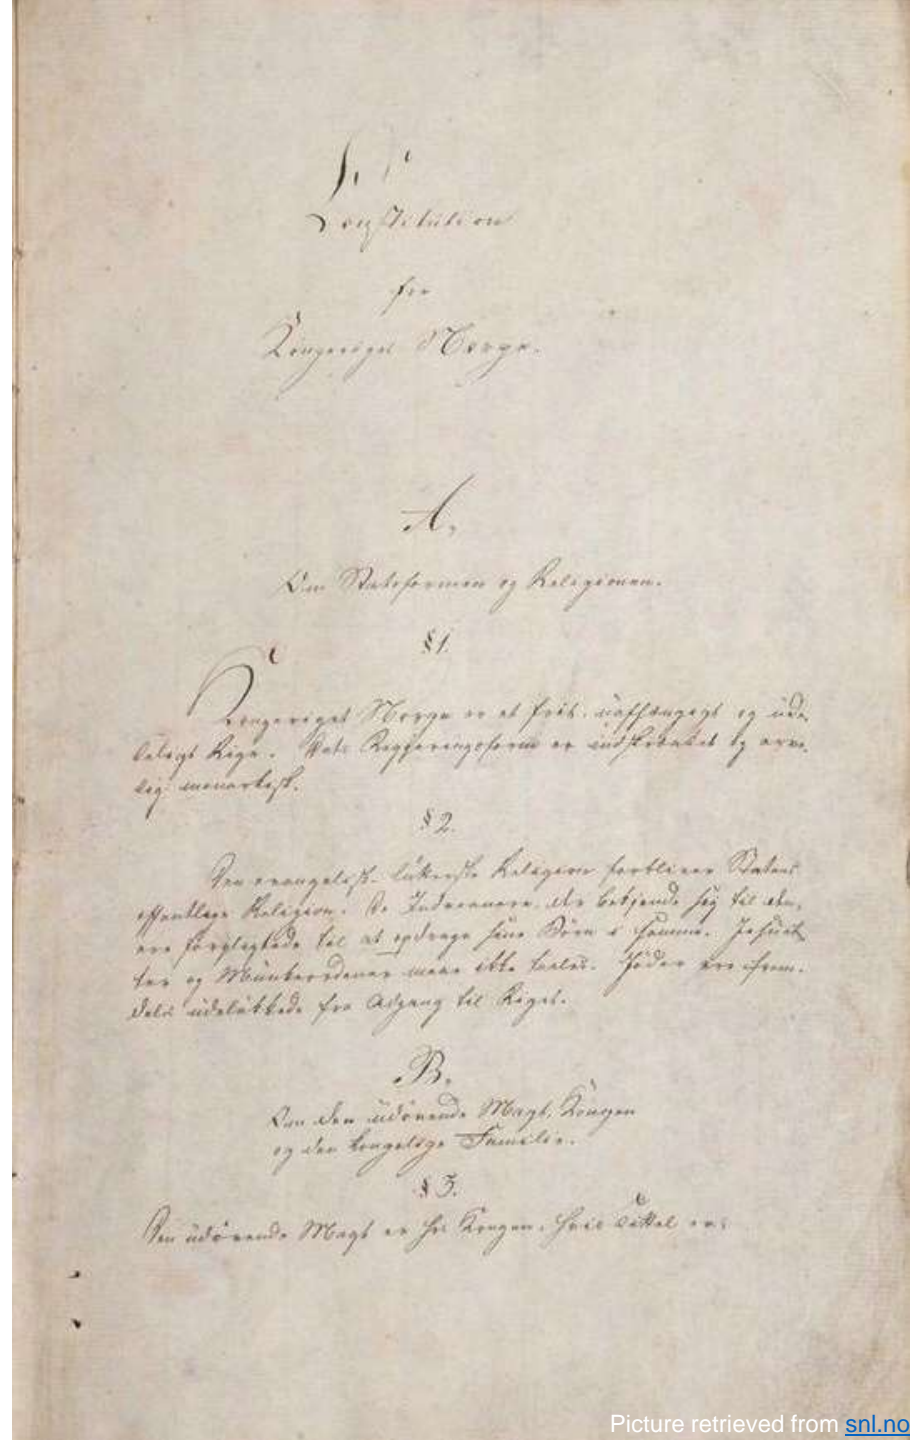 Constitution
for
Kongeriget Norge.
A.
Om Statsformen og Religionen.
§ 1.
Kongeriget Norge er et frit, uafhængigt og ude-
leligt Rige. Dets Regjeringsform er indskrænket og arve-
lig monarkisk.
§ 2.
Den evangelisk-lutterske Religion forbliver Statens
offentlige Religion. De Indvaanere, der bekjende sig til den,
ere forpligtede til at opdrage sine Børn i samme. Jesuit-
ter og Munkeordener maae ikke taales. Jøder ere frem-
deles udelukkede fra Adgang til Riget.
B.
Om den udøvende Magt, Kongen
og den kongelige Familie.
§ 3.
Den udøvende Magt er hos Kongen, hvis Tittel er:
Picture retrieved from snl.no